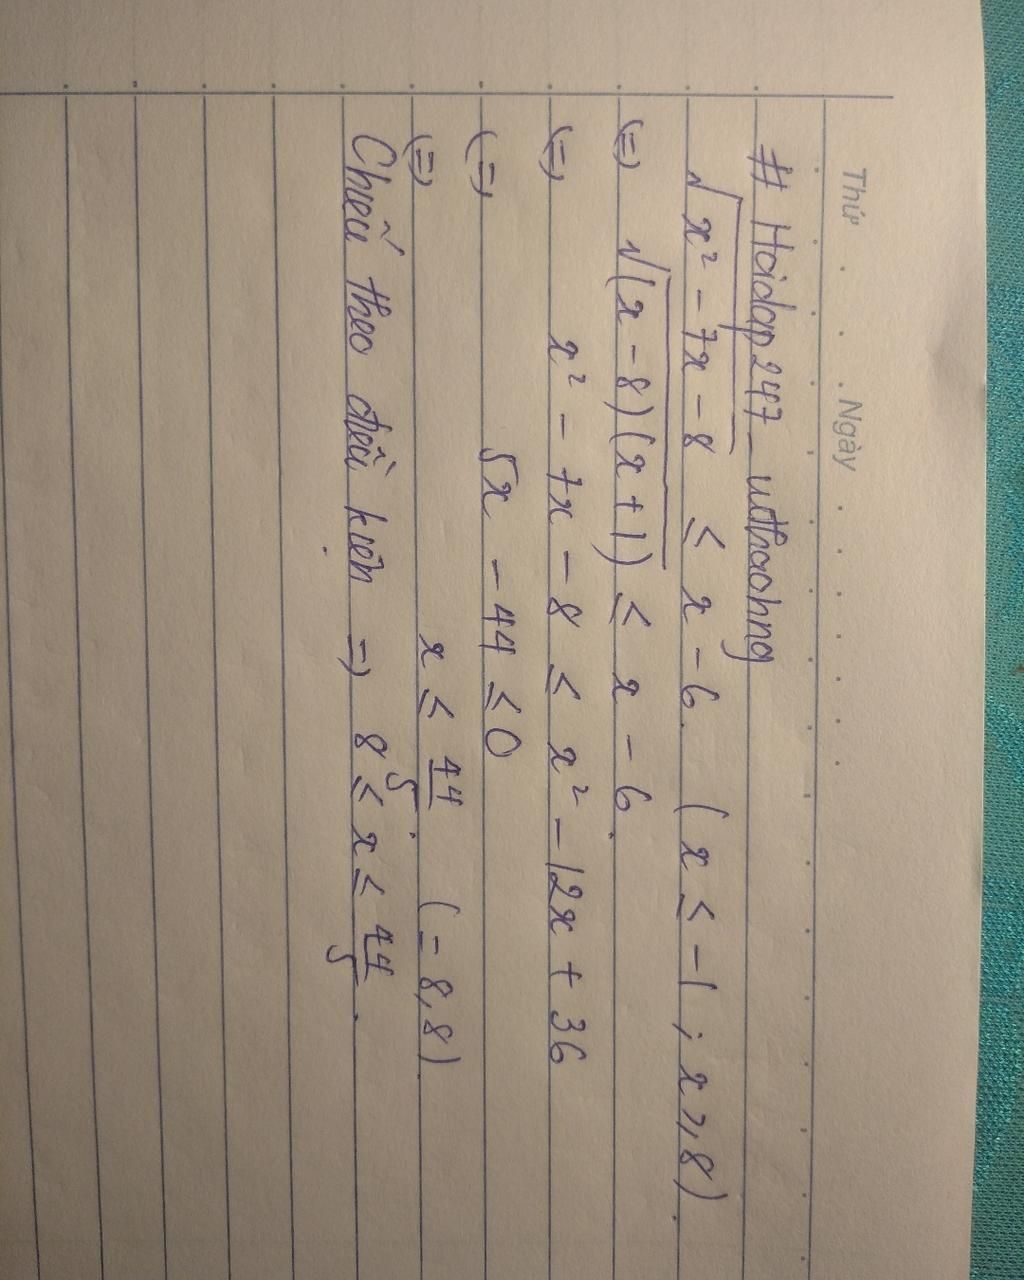 Thứ . . Ngày . . . . . .
# Hoidap247_wthaohng
√x² - 7x - 8 ≤ x - 6. (x ≤ -1 ; x ≥ 8).
(=) √(x - 8)(x + 1) ≤ x - 6.
(=) x² - 7x - 8 ≤ x² - 12x + 36
(=) 5x - 44 ≤ 0
(=) x ≤ 44/5. (= 8,8).
Chiếu theo điều kiện =) 8 ≤ x ≤ 44/5.